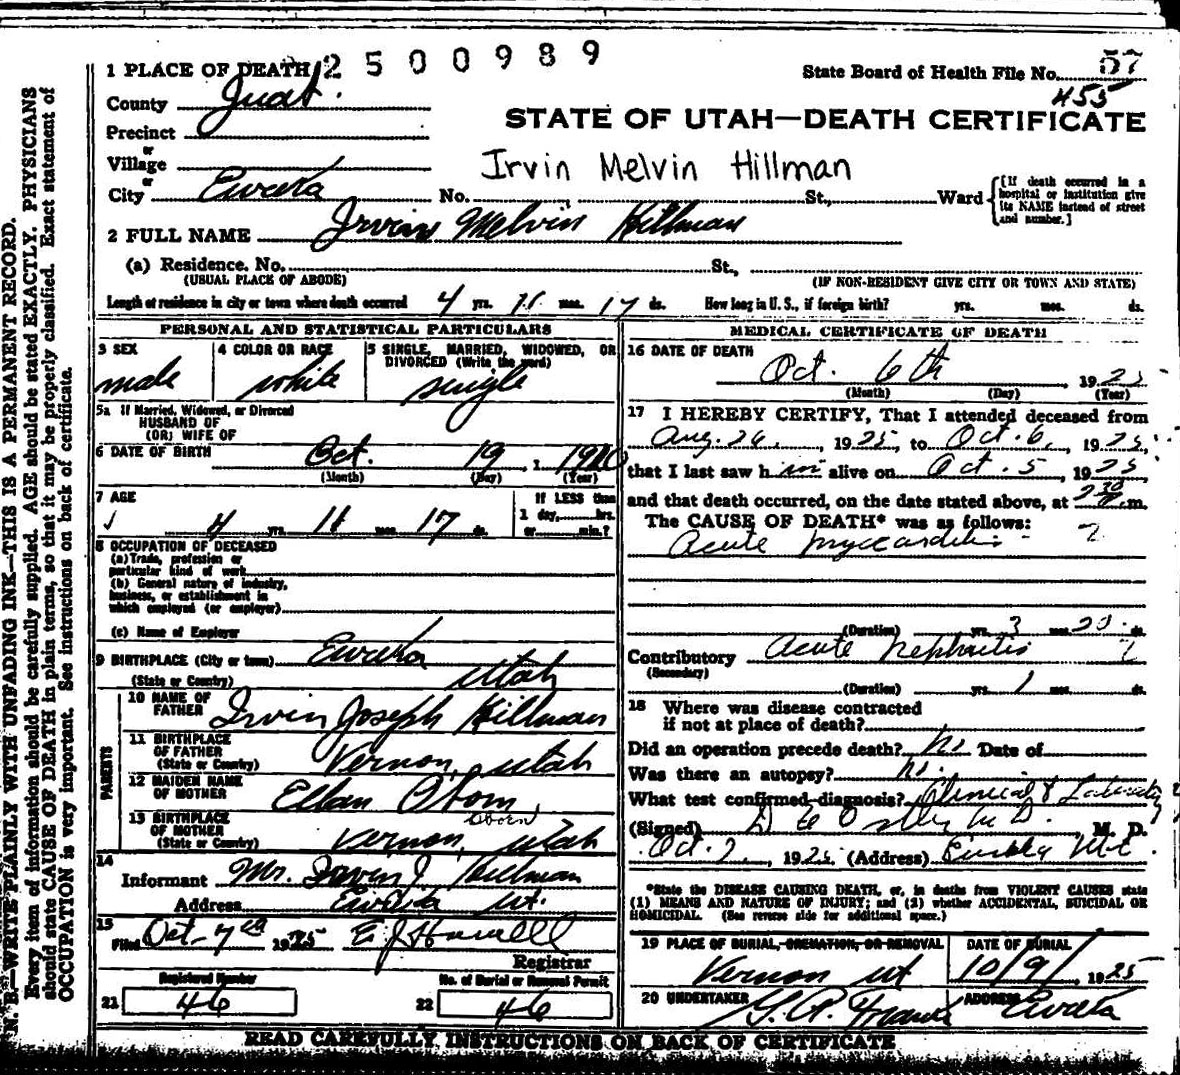 N. B.—WRITE PLAINLY WITH UNFADING INK—THIS IS A PERMANENT RECORD.
Every item of information should be carefully supplied. AGE should be stated EXACTLY. PHYSICIANS
should state CAUSE OF DEATH in plain terms, so that it may be properly classified. Exact statement of
OCCUPATION is very important. See instructions on back of certificate.
2500989
1 PLACE OF DEATH
State Board of Health File No. 57
455
County Juab.
STATE OF UTAH—DEATH CERTIFICATE
Precinct
or
Village
Irvin Melvin Hillman
or
City Eureka No. St., Ward
[If death occurred in a
hospital or institution give
its NAME instead of street
and number.]
2 FULL NAME Irvin Melvin Hillman
(a) Residence. No. St.,
(USUAL PLACE OF ABODE) (IF NON-RESIDENT GIVE CITY OR TOWN AND STATE)
Length of residence in city or town where death occurred 4 yrs. 11 mos. 17 ds. How long in U. S., if foreign birth? yrs. mos. ds.
PERSONAL AND STATISTICAL PARTICULARS
3 SEX 4 COLOR OR RACE 5 SINGLE, MARRIED, WIDOWED, OR
DIVORCED (Write the word)
male white single
5a If Married, Widowed, or Divorced
HUSBAND OF
(OR) WIFE OF
6 DATE OF BIRTH Oct. 19, 1920
(Month) (Day) (Year)
7 AGE
If LESS than
1 day, hrs.
4 yrs. 11 mos. 17 ds. or min.?
8 OCCUPATION OF DECEASED
(a) Trade, profession or
particular kind of work
(b) General nature of industry,
business, or establishment in
which employed (or employer)
(c) Name of Employer
9 BIRTHPLACE (City or town) Eureka
(State or Country) Utah
PARENTS
10 NAME OF
FATHER Irvin Joseph Hillman
11 BIRTHPLACE
OF FATHER
(State or Country) Vernon, Utah
12 MAIDEN NAME
OF MOTHER Ellen Oborn
Oborn
13 BIRTHPLACE
OF MOTHER
(State or Country) Vernon, Utah
14
Informant Mr. Irvin J. Hillman
Address Eureka Ut.
15
Filed Oct 7th 1925 E. J. Howell
Registrar
Registered Number No. of Burial or Removal Permit
21 46 22 46
MEDICAL CERTIFICATE OF DEATH
16 DATE OF DEATH
Oct. 6th, 1925
(Month) (Day) (Year)
17 I HEREBY CERTIFY, That I attended deceased from
Aug. 26, 1925 to Oct. 6, 1925
that I last saw him alive on Oct. 5, 1925
and that death occurred, on the date stated above, at 2 30 m.
The CAUSE OF DEATH* was as follows:
Acute myocarditis
(Duration) yrs. 3 mos. 20 ds.
Contributory Acute Nephritis
(Secondary)
(Duration) yrs. 1 mos. ds.
18 Where was disease contracted
if not at place of death?
Did an operation precede death? No Date of
Was there an autopsy? No.
What test confirmed diagnosis? Clinical & Laboratory
(Signed) M.D., M. D.
Oct. 7, 1925 (Address) Eureka Ut.
*State the DISEASE CAUSING DEATH, or, in deaths from VIOLENT CAUSES state
(1) MEANS AND NATURE OF INJURY; and (2) whether ACCIDENTAL, SUICIDAL OR
HOMICIDAL. (See reverse side for additional space.)
19 PLACE OF BURIAL, CREMATION, OR REMOVAL DATE OF BURIAL
Vernon Ut 10/9/1925
20 UNDERTAKER ADDRESS
Eureka
READ CAREFULLY INSTRUCTIONS ON BACK OF CERTIFICATE